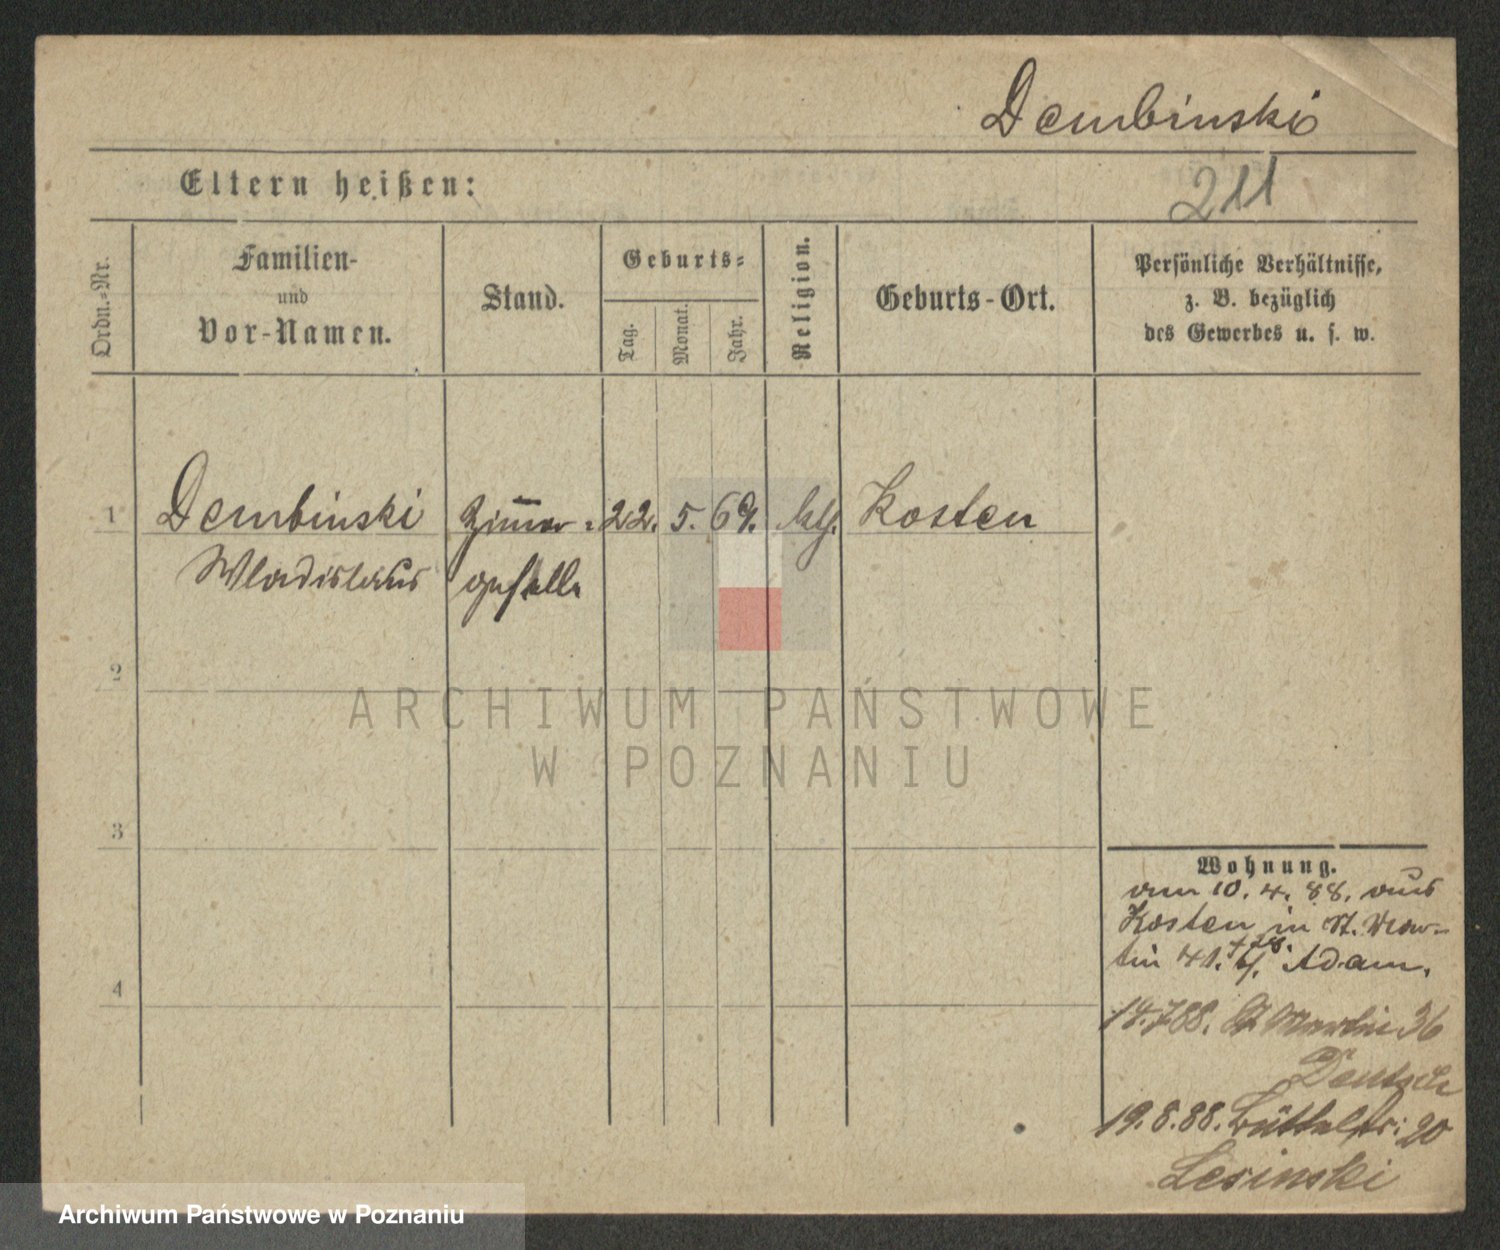 Dembinski
Eltern heißen:
211
Ordn.-Nr.
Familien-
und
Vor-Namen.
Stand.
Geburts-
Tag.
Monat.
Jahr.
Religion.
Geburts-Ort.
Persönliche Verhältnisse,
z. B. bezüglich
des Gewerbes u. s. w.
1 Dembinski Zimmer- 22. 5. 69. kth. Kosten
Wladislaus geselle
2
3
4
ARCHIWUM PAŃSTWOWE
W POZNANIU
Wohnung.
am 10. 4. 88. aus
Kosten in St. Mar-
tin 41. b/. Adam.
14.7 88. St Martin 36
Deutsch
19. 8. 88. Büttelstr: 20
Lesinski
Archiwum Państwowe w Poznaniu